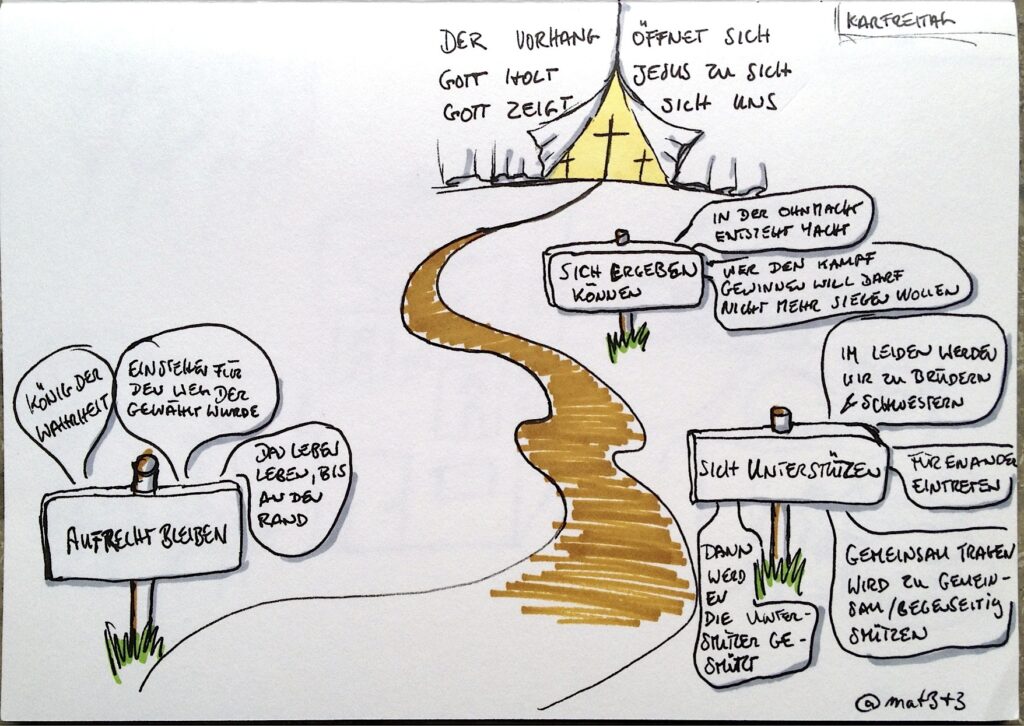 KARFREITAG
DER VORHANG ÖFFNET SICH
GOTT HOLT JESUS ZU SICH
GOTT ZEIGT SICH UNS
IN DER OHNMACHT
ENTSTEHT MACHT
SICH ERGEBEN
KÖNNEN
WER DEN KAMPF
GEWINNEN WILL DARF
NICHT MEHR SIEGEN WOLLEN
KÖNIG DER
WAHRHEIT
EINSTEHEN FÜR
DEN WEG DER
GEWÄHLT WURDE
DAS LEBEN
LEBEN, BIS
AN DEN
RAND
AUFRECHT BLEIBEN
IM LEIDEN WERDEN
WIR ZU BRÜDERN
& SCHWESTERN
SICH UNTERSTÜTZEN
FÜREINANDER
EINTRETEN
DANN
WERD
EN
DIE UNTER-
STÜTZER GE-
STÜTZT
GEMEINSAM TRAGEN
WIRD ZU GEMEIN-
SAM/GEGENSEITIG
STÜTZEN
@mat3t3